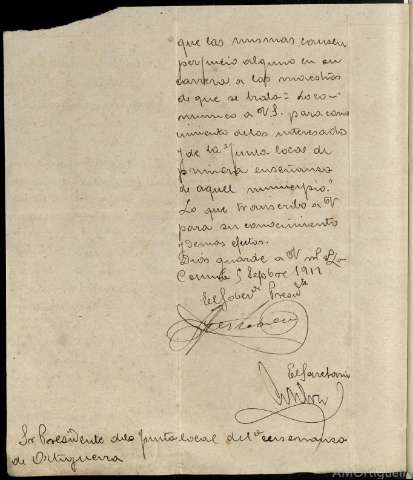 que las mismas causen
perjuicio alguno en su
carrera a los maestros
de que se trata = Lo co-
munico a V.S. para cono
cimiento de los interesado
y de la Junta local de
primera enseñanza
de aquel municipio."
Lo que transcribo a V
para su conocimiento
y demas efectos.
Dios guarde a V m. a.
Coruña 5 Sepbre 1912
El Gober.r Presid.te
El Secretario
Sr Presidente de la Junta local de 1.a enseñanza
de Ortigueira
AMOrtigueira